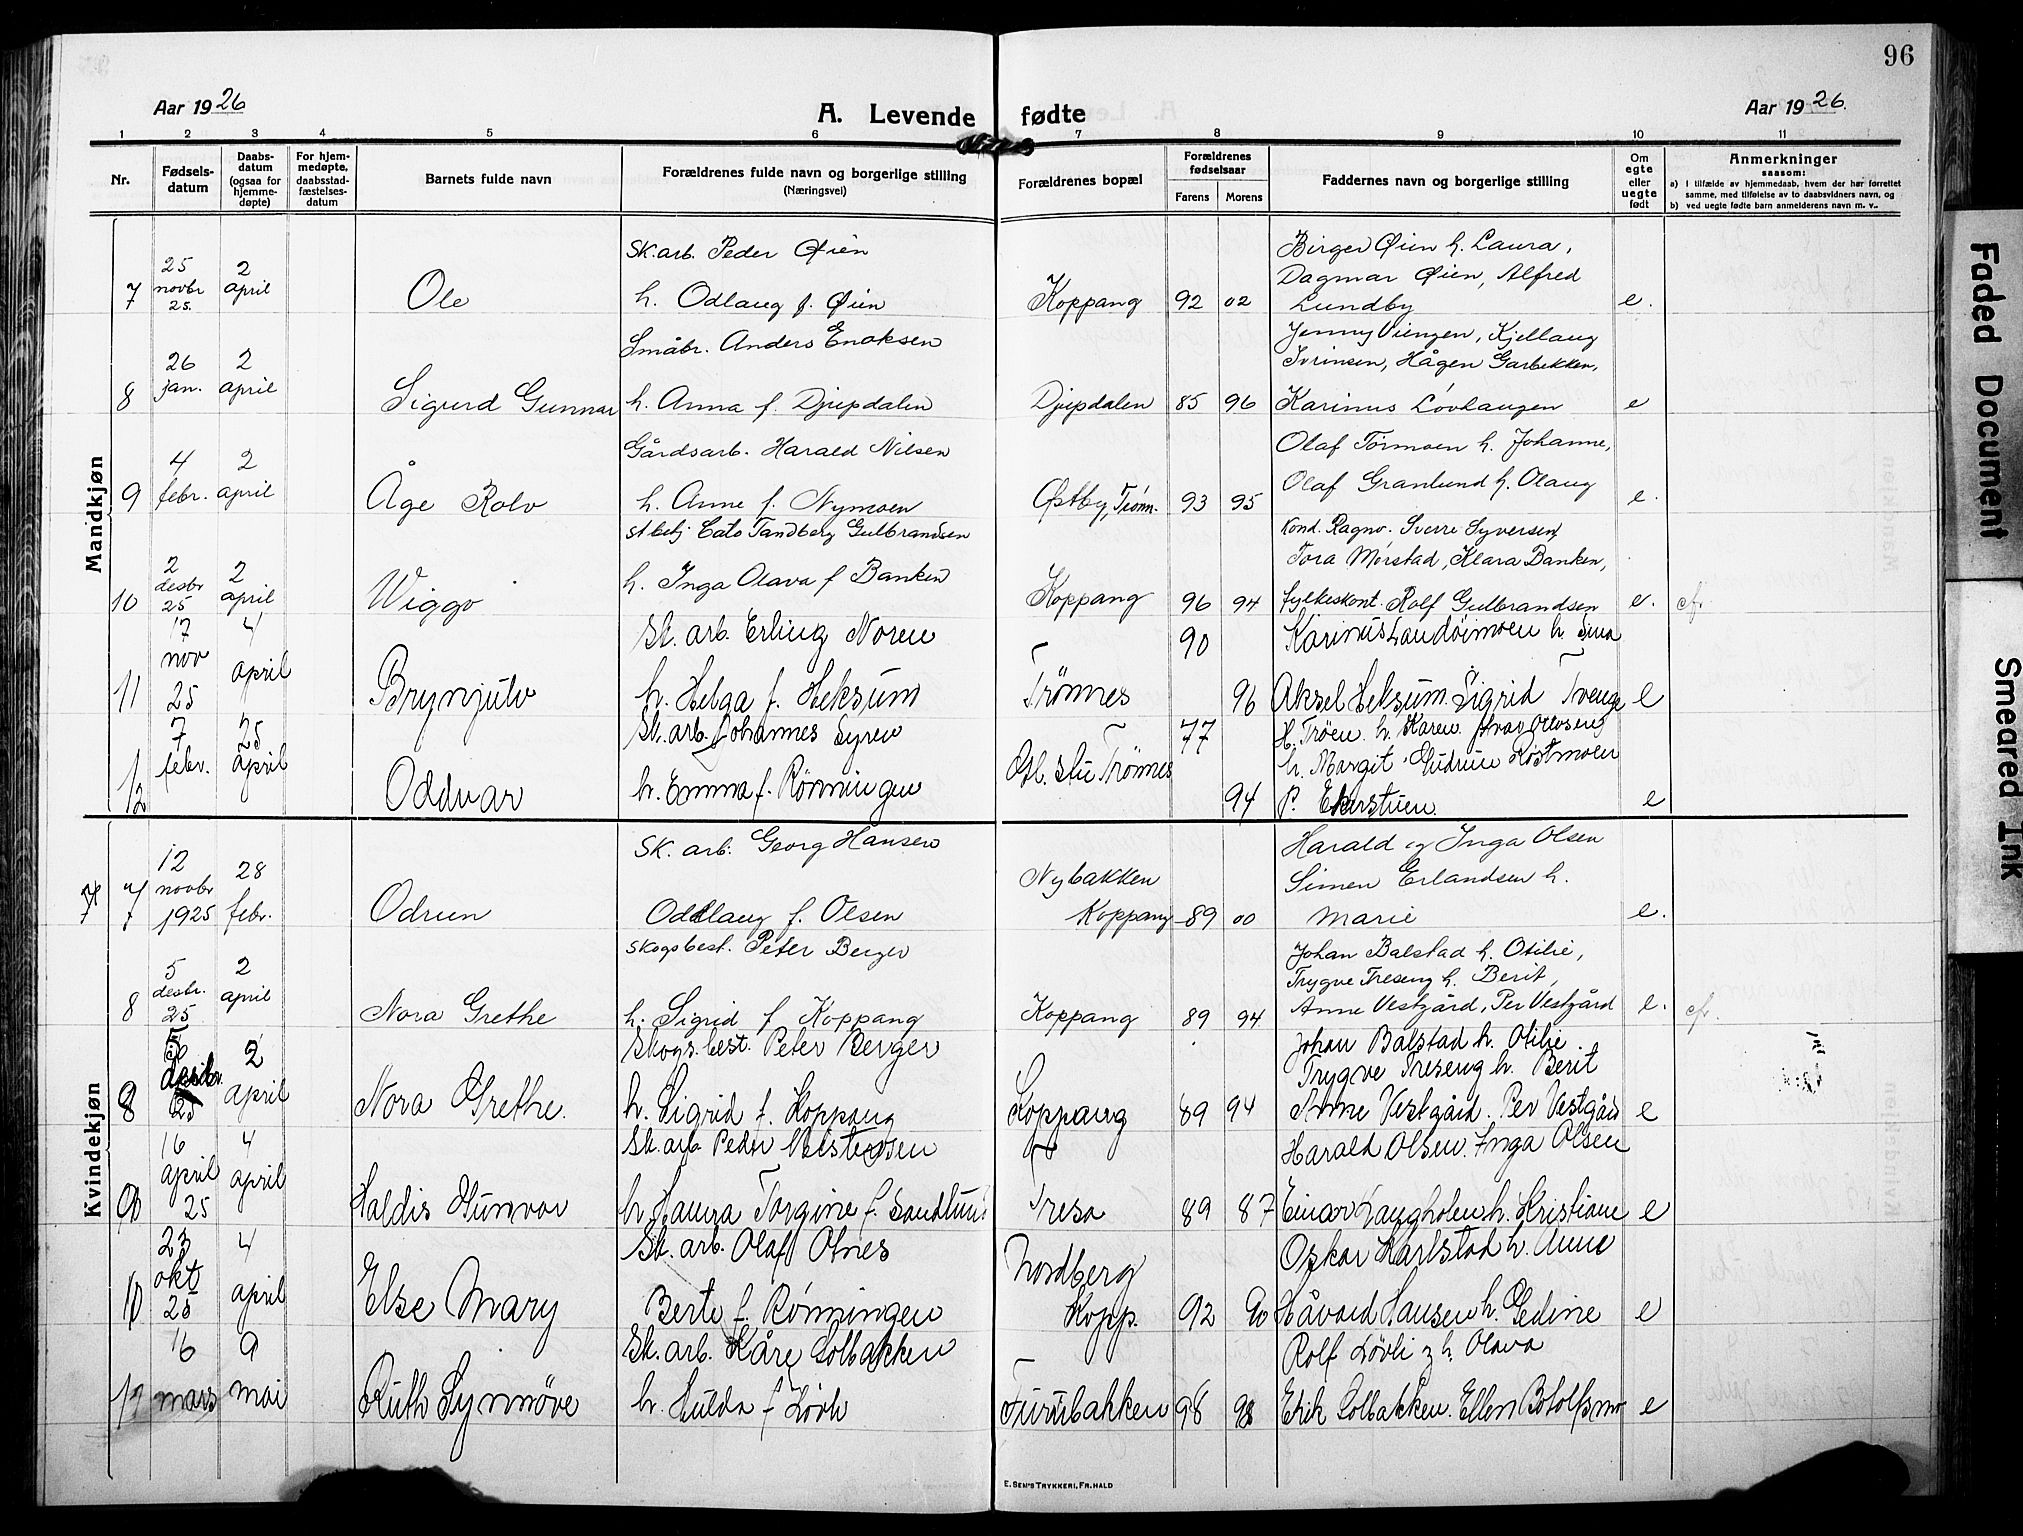 96
Aar 1926
A. Levende fødte
Aar 1926.
1 2 3 4 5 6 7 8 9 10 11
Nr.
Fødsels-
datum
Daabs-
datum
(ogsaa for
hjemme-
døpte)
For hjem-
medøpte,
daabsstad-
fæstelses-
datum
Barnets fulde navn
Forældrenes fulde navn og borgerlige stilling
(Næringsvei)
Forældrenes bopæl
Forældrenes
fødselsaar
Farens Morens
Faddernes navn og borgerlige stilling
Om
egte
eller
uegte
født
Anmerkninger
saasom:
a) I tilfælde av hjemmedaab, hvem der har forrettet
samme, med tilføielse av to daabsvidners navn, og
b) ved uegte fødte barn anmelderens navn m. v..
Mandkjøn
Sk.arb. Peder Øien Birger Øien h. Laura,
25 2 Dagmar Øien, Alfred
7 novbr april Ole h. Odlaug f. Øien Koppang 92 02 Lundby e.
25.
Småbr. Anders Enoksen Jenny Viengen, Kjellaug
26 2 Ivrinsen, Hågen Garbekken,
8 jan. april Sigurd Gunnar h. Anna f. Djupdalen Djupdalen 85 96 Karinus Lövhaugen e
Gårdsarb. Harald Nilsen Olaf Tormoen h. Johanne,
4 2 Olaf Granlund h. Olaug
9 febr. april Åge Rolv h. Anne f. Nymoen Østby, Trönn. 93 95 e.
st betj Cato Tandberg Gulbrandsen Kond. Ragnv. Sverre Syversen
2 2 Tora Mörstad, Klara Banken,
10 desbr april Wiggo h. Inga Olava f Banken Koppang 96 94 fylkeskont. Rolf Gulbrandsen e. cfr.
25
17 4 Sk. arb. Erling Noren 90 Karinus Landöimoen h. Sina
11 nov april Brynjulv h. Helga f. Heksum Trönnes 96 Aksel Heksum. Sigrid Tvenge e
25
7 25 Sk. arb. Johannes Syren 77 H. Tröen. h. Karen. Olvsen
12 febr. april Oddvar h. Emma f. Rönningen Trönnes h. Margit. Gudrun Röstmoen
94 P. e
Kvindekjøn
Sk. arb. Georg Hansen Harald og Inga Olsen
12 28 Nybakken Simen Erlandsen h.
7 7 novbr febr. Odrun Oddlaug f. Olsen Koppang 89 00 Marie e.
1925
Skogsbest. Peter Berger Johan Balstad h. Otilie,
5 2 Trygve Treseng h. Berit,
8 desbr. april Nora Grethe h. Sigrid f Koppang Koppang 89 94 Anne Vestgård, Per Vestgård e. cfr.
25
5 2 Skogs.best. Peter Berger Johan Balstad h. Otilie.
Trygve Treseng h. Berit
8 25 april Nora Grethe. h. Sigrid f. Koppang Koppang 89 94 Anne Vestgård. Per Vestgård e
16 4 Sk. arb. Peder Harald Olsen. Inga Olsen
9 april april Haldis Gunvor h. Laura Torgine f. Sandlund Tresa 89 87 Einar Langholen h. Kristiane e
25
23 4 Sk. arb. Olaf Olnes Nordberg Oskar Karlstad h. Anne
10 okt april Else Mary Berte f. Rönningen Kopp. 92 90 Håvard Hansen h. Gedine e
25
16 9 Sk. arb. Kåre Solbakken Rolf Lövli og h. Olava
12 mars mai Ruth Synnöve h. Hulda f Lövli Furubakken 98 98 Erik Solbakken. Ellen Botolfsmo e
E. SEM'S TRYKKERI, FR.HALD
Faded Document
Smeared Ink